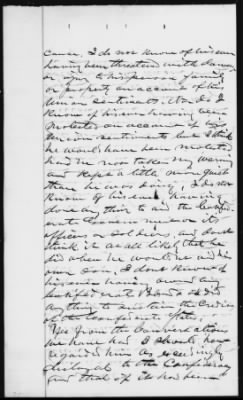 cause, I do not know of his ever
having been threatened with damage
or injury to his person, family
or property on account of his
Union sentiments. Nor do I
know of his ever having been
molested on account of his
Union sentiments but I think
he would have been molested
had he not taken my warning
and kept a little more quiet
than he was doing, I do not
know of his ever having
done any thing to aid the Confed-
erate Government or its
officers or soldiers, and dont
think it at all likely that he
did when he would not aid his
own son, I dont know of
his ever having owned any
Confederate Bonds or did
any thing to sustain the Credit
of the Confederate States,
Yes from the Conversations
we have had I should have
regarded him as exceedingly
disloyal to the Confederacy
and that if it had been